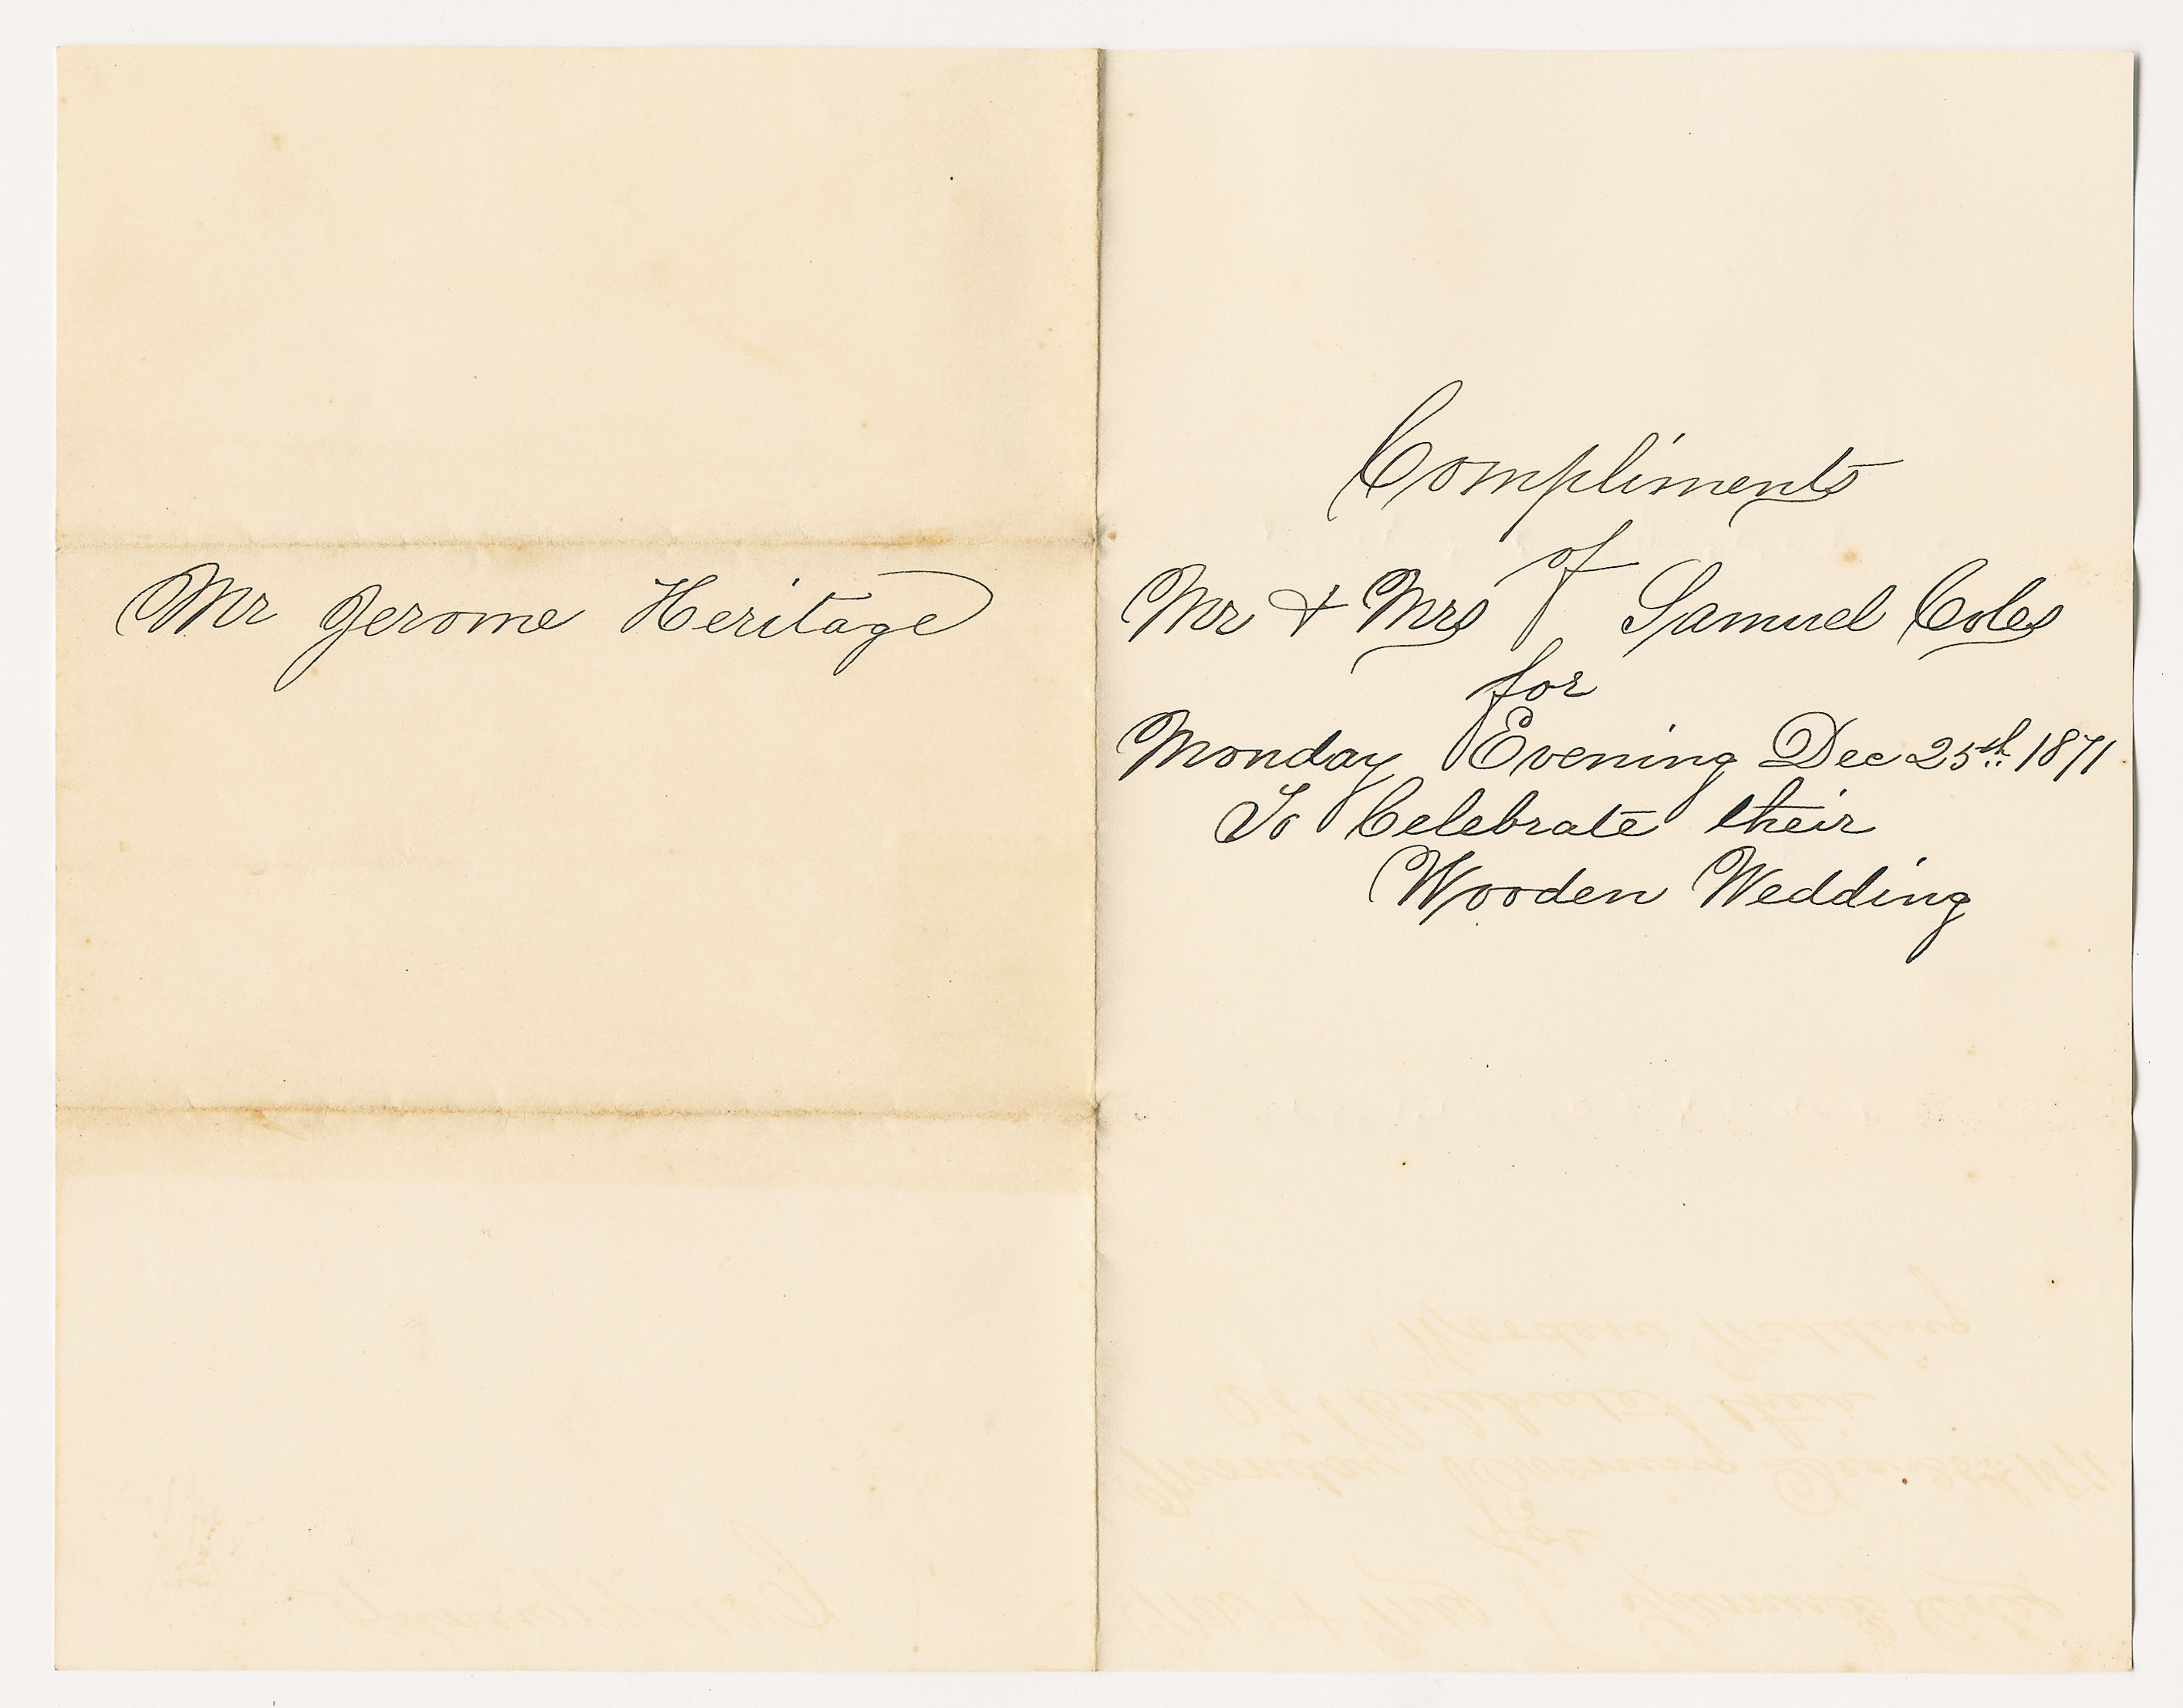 Mr Jerome Heritage
Compliments
of
Mr & Mrs Samuel Coles
for
Monday Evening Dec 25th 1871
To Celebrate their
Wooden Wedding